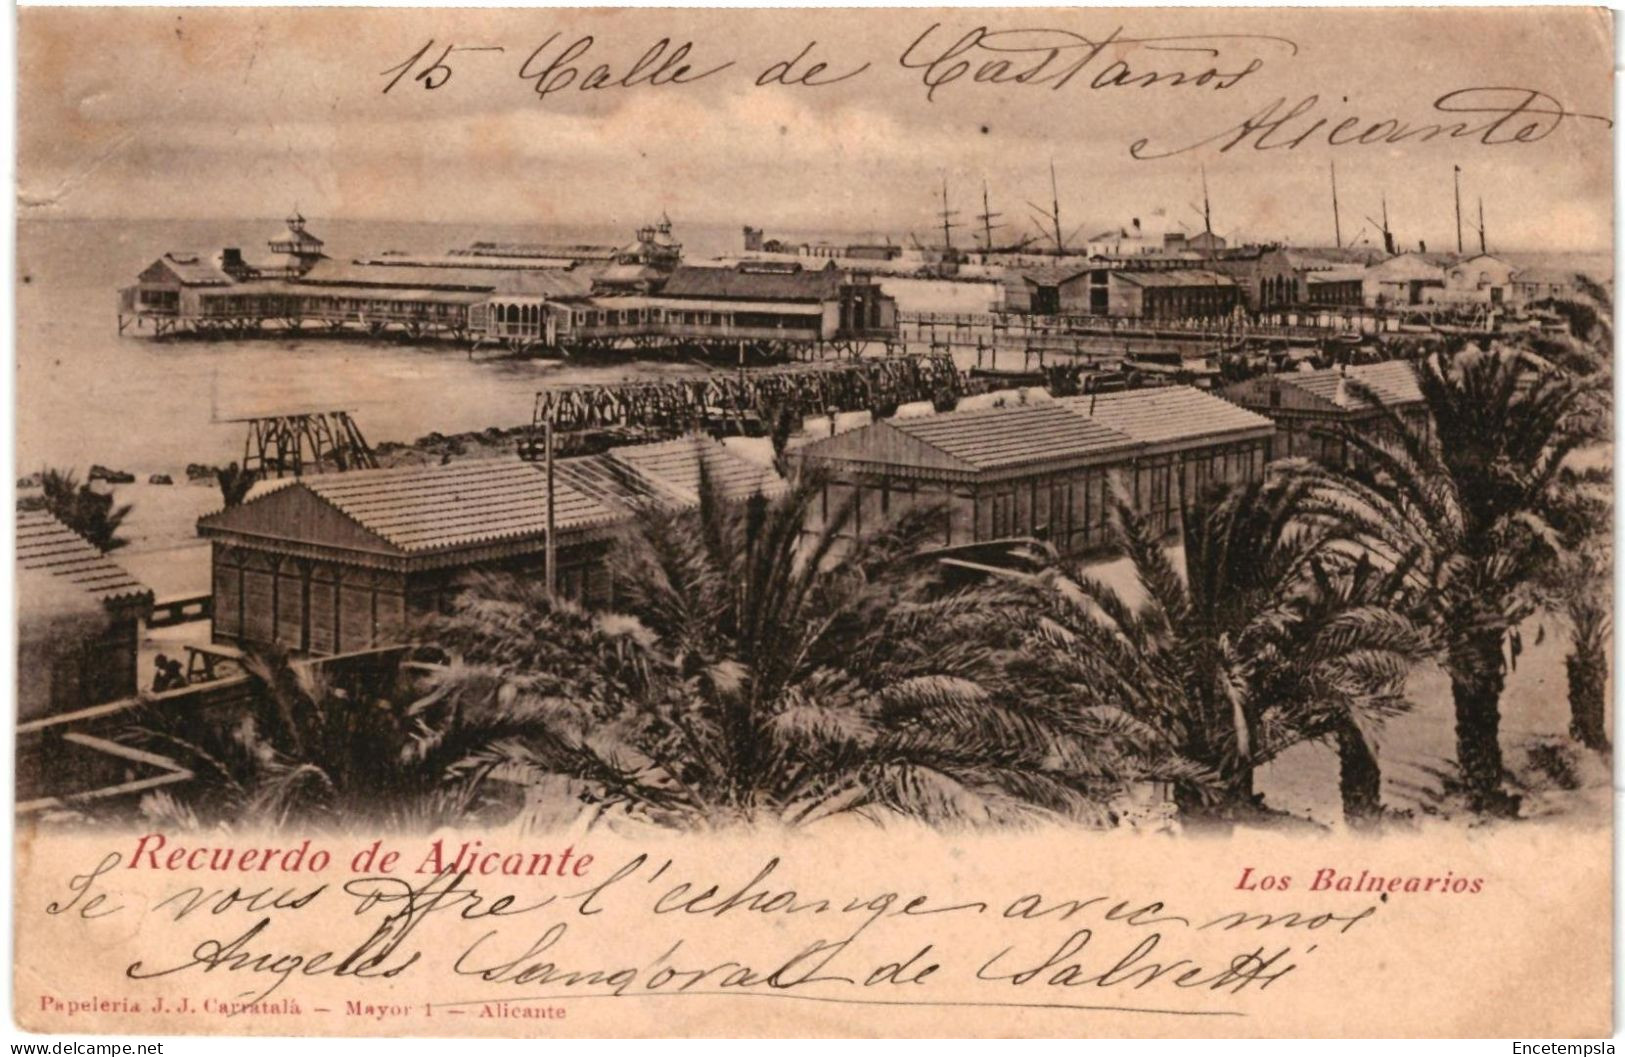 15 Calle de Castaños
Alicante
Recuerdo de Alicante
Los Balnearios
Se vous offre l'echange avec moi
Angeles Sandoval de Salvetti
Papeleria J. J. Carratalá — Mayor 1 — Alicante
www.delcampe.net
Encetempsla